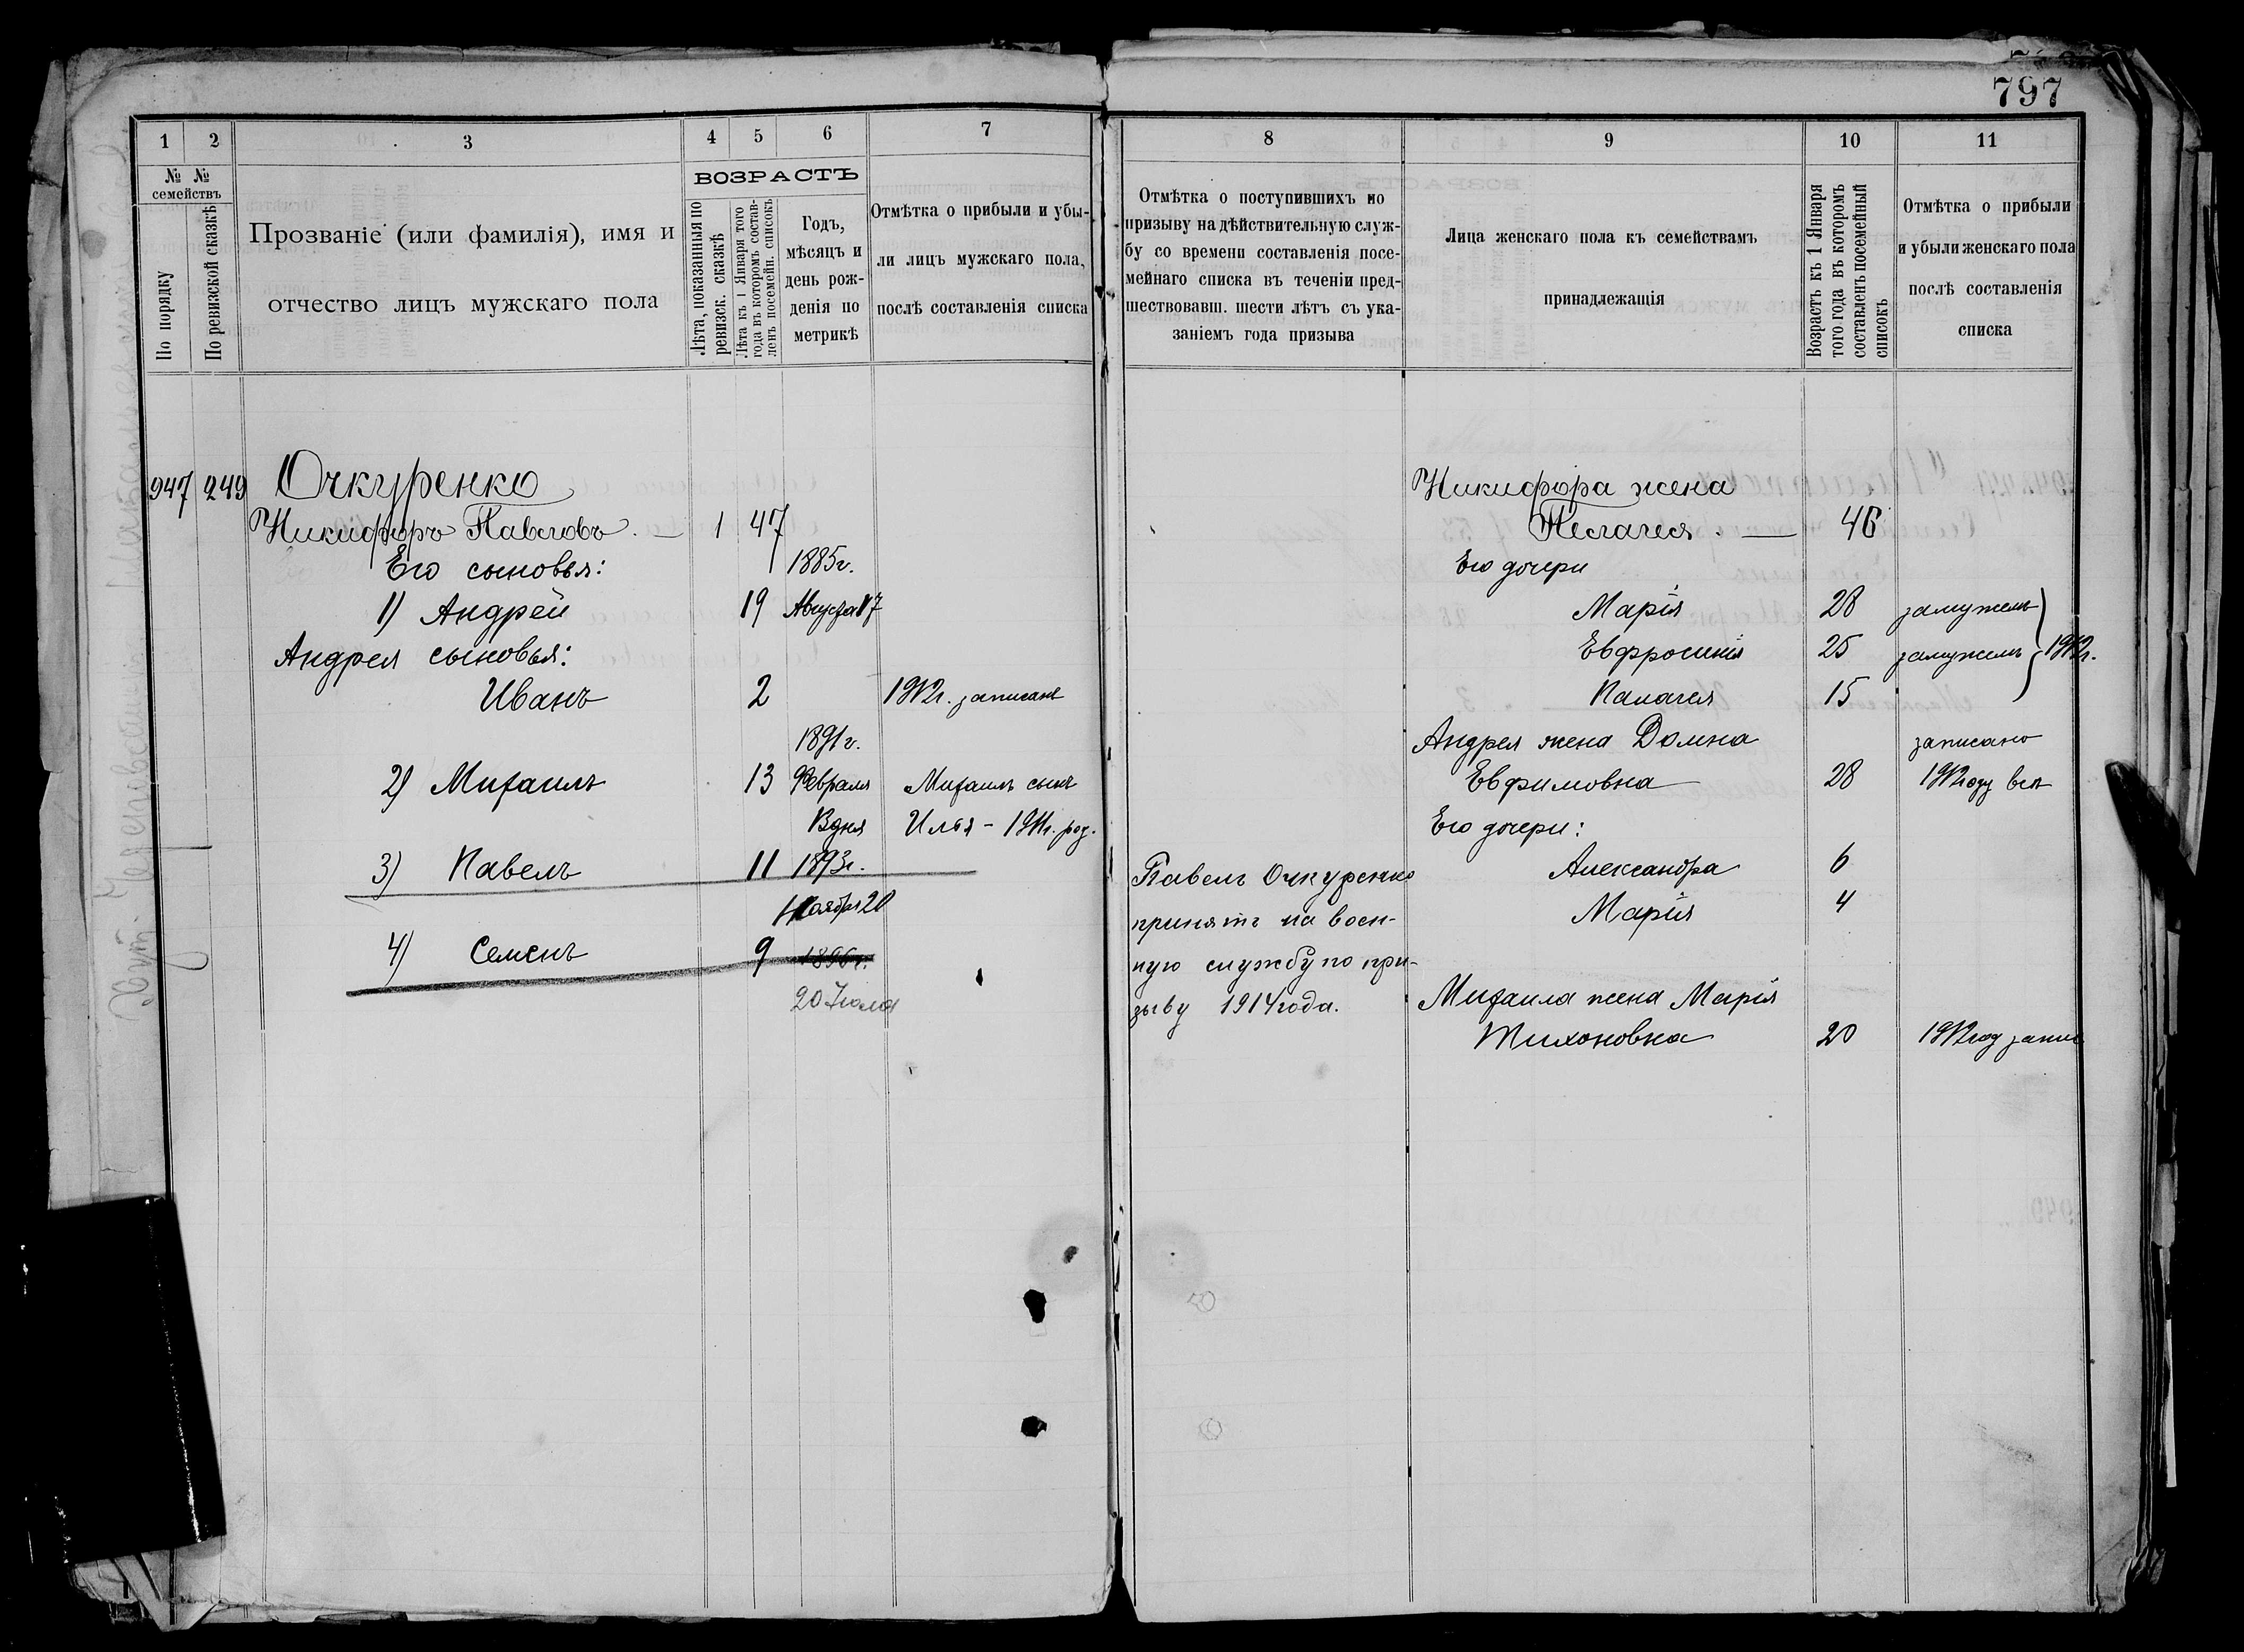 797
1 2 3 4 5 6 7
№ № семействъ
По порядку
По ревизской сказкѣ
Прозваніе (или фамилія), имя и
отчество лицъ мужскаго пола
ВОЗРАСТЪ
Лѣта, показанныя по
ревизск. сказкѣ
Лѣта къ 1 Января того
года въ которомъ состав-
ленъ посемейн. списокъ
Годъ,
мѣсяцъ и
день рож-
денія по
метрикѣ
Отмѣтка о прибыли и убы-
ли лицъ мужскаго пола,
послѣ составленія списка
947 249 Очкуренко
Никифоръ Павловъ. — 1 47
Его сыновья: 1885г.
1) Андрей 19 Августа 17
Андрея сыновья:
Иванъ 2 1912г. записанъ
1891г.
2) Михаилъ 13 Февраля Михаилъ сынъ
дня Илья - 1911г. род.
3) Павелъ 11 1893г.
Ноября 20
4) Семенъ 9 1896г.
20 Іюля
8 9 10 11
Отмѣтка о поступившихъ по
призыву на дѣйствительную служ-
бу со времени составленія посе-
мейнаго списка въ теченіи пред-
шествовавш. шести лѣтъ съ ука-
заніемъ года призыва
Лица женскаго пола къ семействамъ
принадлежащія
Возрастъ къ 1 Января
того года въ которомъ
составленъ посемейный
списокъ
Отмѣтка о прибыли
и убыли женскаго пола
послѣ составленія
списка
Павелъ Очкуренко
принятъ на воен-
ную службу по при-
зыву 1914 года.
Никифора жена
Пелагея. — 46
Его дочери
Марія 28 замужемъ
Евфросинія 25 замужемъ } 1912г.
Палагея 15
Андрея жена Домна записано
Евфимовна 28 1912 году
Его дочери:
Александра 6
Марія 4
Михаила жена Марія
Тихоновна 20 1912 год запис